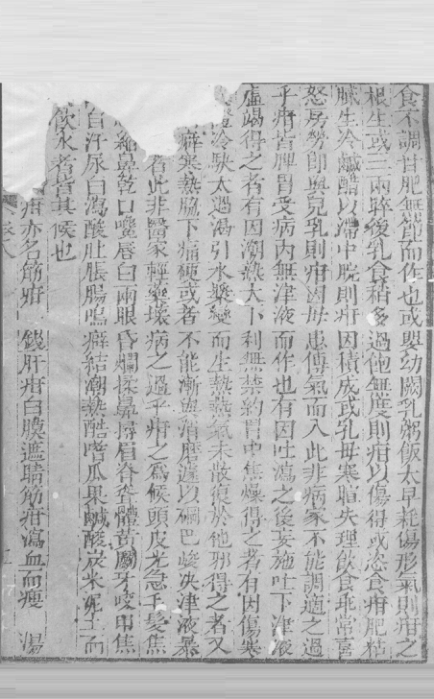 食不調甘肥無節而作也或嬰幼闕乳粥飯太早耗傷形氣則疳之
根生或三兩晬後乳食稍多過飽無度則疳以傷得或恣食疳肥粘
膩生冷鹹醋以滯中脘則疳因積成或乳母寒暄失理飲食乖常喜
怒房勞即與兒乳則疳因母患傳氣而入此非病家不能調適之過
乎疳皆脾胃受病內無津液而作也有因吐瀉之後妄施吐下津液
虛竭得之者有因潮熱大下利無禁約胃中焦燥得之者有因傷寒
冷駃太過渴引水漿變而生熱熱氣未散復於他邪得之者又
癖寒熱脇下痛硬或者不能漸與消磨遽以硇巴峻決津液暴
者此非醫家輕變壞病之過乎疳之為候頭皮光急毛髮焦
縮鼻乾口嚵唇白兩眼昏爛揉鼻撏眉脊聳體黃鬬牙咬甲焦
自汗尿白瀉酸肚脹腸鳴癖結潮熱酷嗜瓜果鹹酸炭米泥土而
飲水者皆其候也
疳亦名筋疳 錢肝疳白膜遮睛筋疳瀉血而瘦 湯